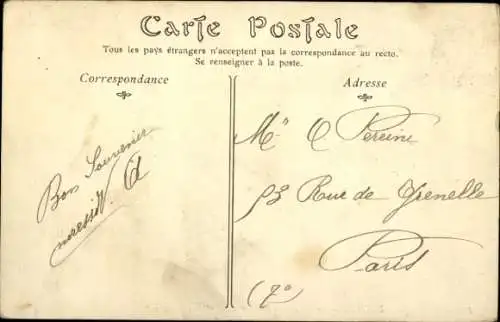 Carte Postale
Tous les pays étrangers n'acceptent pas la correspondance au recto.
Se renseigner à la poste.
Correspondance
Bon Souvenir
Adresse
Rue de Grenelle
Paris
(7º)